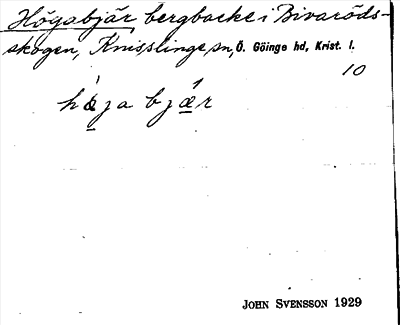 Högabjär bergbacke i Bivaröds-
skogen, Knisslinge sn, Ö. Göinge hd, Krist. l.
10
JOHN SVENSSON 1929